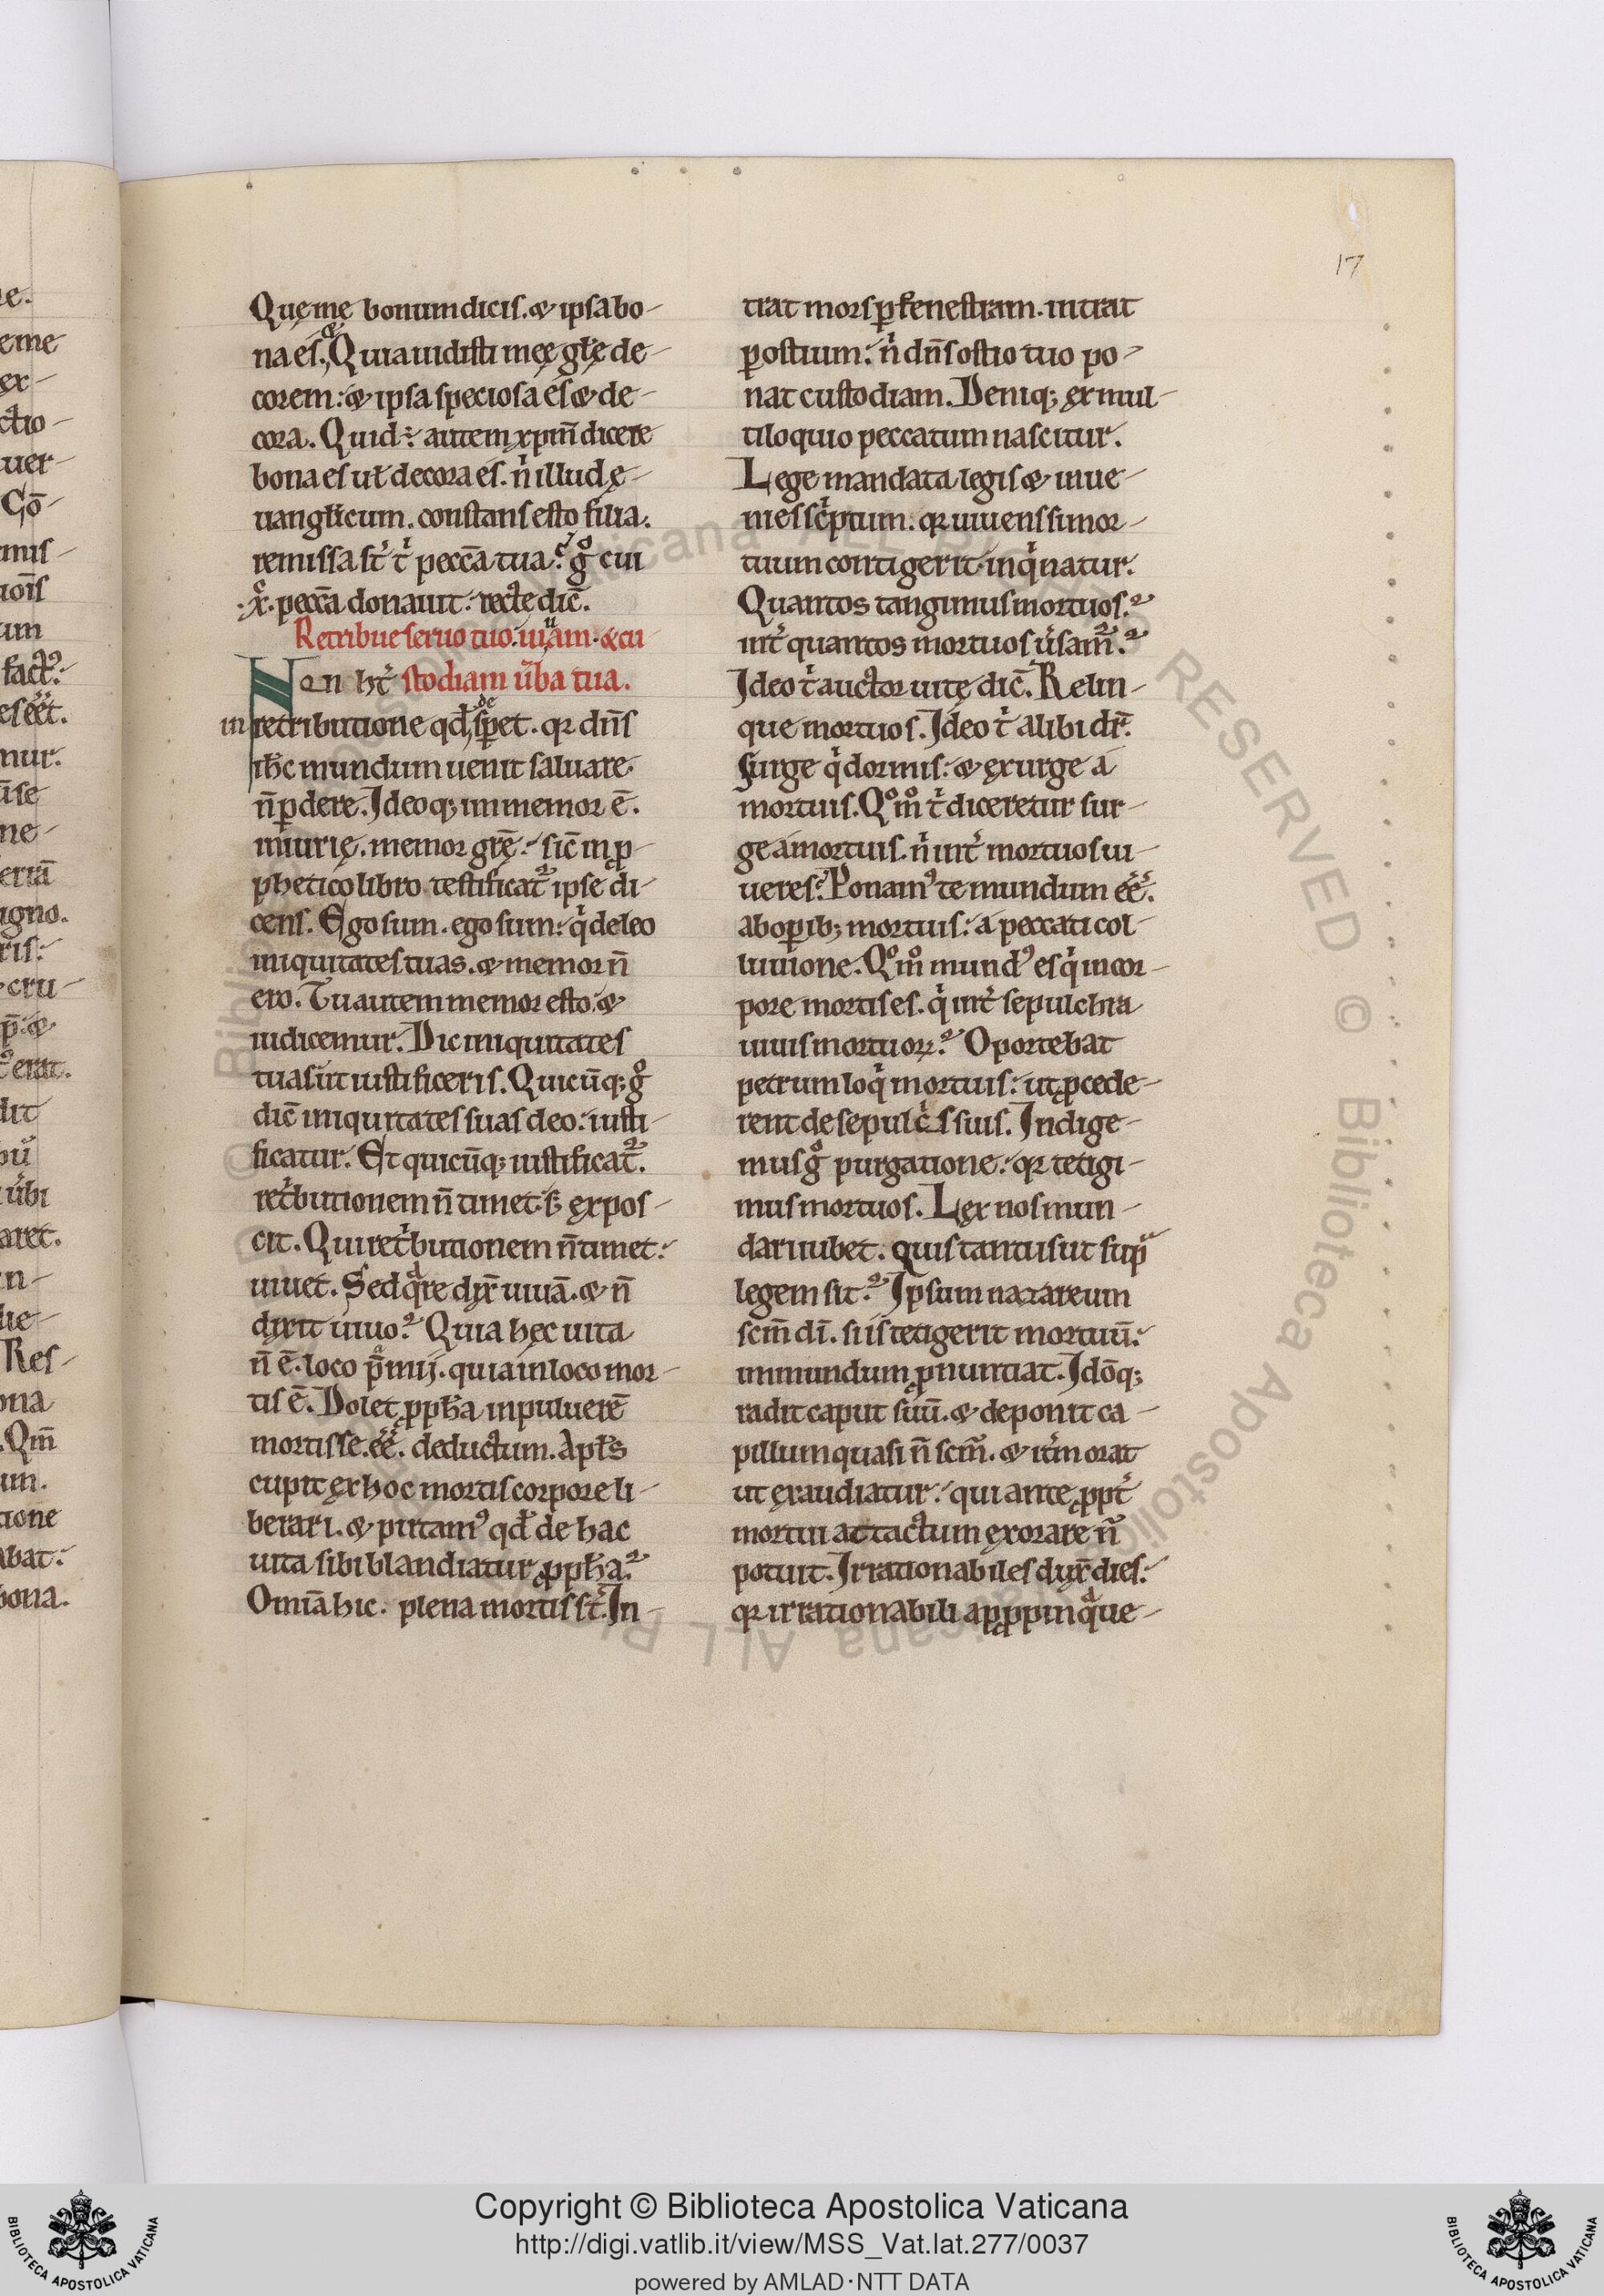 17
Quę me bonum dicis. & ipsa bo-
na es. & Quia uidisti meę gl̄ę de-
corem: & ipsa speciosa es & de-
cora. Quid ÷ autem xp̄m dicere
bona es ut̄ decora es. nͥ illud ę-
uangl̄icum. constans esto filia.
remissa st̄ tͥ pecc̄a tua? gͦ cui
xͬ. pecc̄a donauit: recte dic̄.
Retribue seruo tuo. uiuam. & cu
stodiam ūba tua.
Non ht̄
in retributione qd̄ desp̱et. qꝛ dn̄s
ih̄c mundum uenit saluare.
n̄ ꝑdere. Ideoq; immemor ē.
iniurię. memor gr̄ę: sic̄ in ꝓ-
phetico libro testificat᷑ ipse di-
cens. Ego sum. ego sum: qͥ deleo
iniquitates tuas. & memor n̄
ero. Tu autem memor esto. &
iudicemur. Dic iniquitates
tuas ut iustificeris. Quicūq; gͦ
dic̄ iniquitates suas deo: iusti-
ficatur. Et quicūq; iustificat᷑.
retͥbutionem n̄ timet. s; expos-
cit. Qui retͥbutionem n̄ timet:
uiuet. Sed qͣre dix̄ uiuā. & n̄
dixit uiuo? Quia hęc uita
n̄ ē. loco p̄mij. quia in loco mor-
tis ē. Dolet ꝓph̄a in puluerē
mortis se. ēē. deductum. Apl̄s
cupit ex hoc mortis corpore li-
berari. & putamꝰ qd̄ de hac
uita sibi blandiatur ꝓph̄a?
Omīa hic. plena mortis st̄. In-
trat mors ꝑ fenestram. intrat
ꝑ ostium: nͥ dn̄s ostio tuo po-
nat custodiam. Deniq; ex mul-
tiloquio peccatum nascitur.
Lege mandata legis & inue-
nies scͥptum. qꝛ uiuens si mor-
tuum contigerit. inqͥnatur.
Quantos tangimus mortuos?
int̄ quantos mortuos ūsam᷑?
Ideo tͥ auctor uitę dic̄. Relin-
que mortuos. Ideo tͥ alibi dr̄.
Surge qͥ dormis: & exurge a
mortuis. Qͦmͦ tͥ diceretur sur-
ge a mortuis. nͥ int̄ mortuos ui-
ueres? Ponamꝰ te mundum ēē.
ab oꝑib; mortuis: a peccati col-
luuione. Qͦmͦ mundꝰ es qͥ in cor-
pore mortis es. qͥ int̄ sepulchra
uiuis mortuoꝝ? Oportebat
petrum loqͥ mortuis: ut ꝓcede-
rent de sepulcͥs suis. Indige-
mus gͦ purgatione: qꝛ tetigi-
mus mortuos. Lex nos mun-
dari iubet. quis tantus ut supͣ
legem sit? Ipsum nazareum
scm̄ dī. si is tetigerit mortuū:
immundum ꝓnuntiat. Idōq;
radit caput suū. & deponit ca-
pillum quasi n̄ scm̄. & it̄m orat
ut exaudiatur: qui ante ꝓpt̄
mortui attactum exorare n̄
potuit. Irrationabiles dix̄ dies:
qꝛ irrationabili apꝓpinqͣue-
Copyright © Biblioteca Apostolica Vaticana
http://digi.vatlib.it/view/MSS_Vat.lat.277/0037
powered by AMLAD·NTT DATA